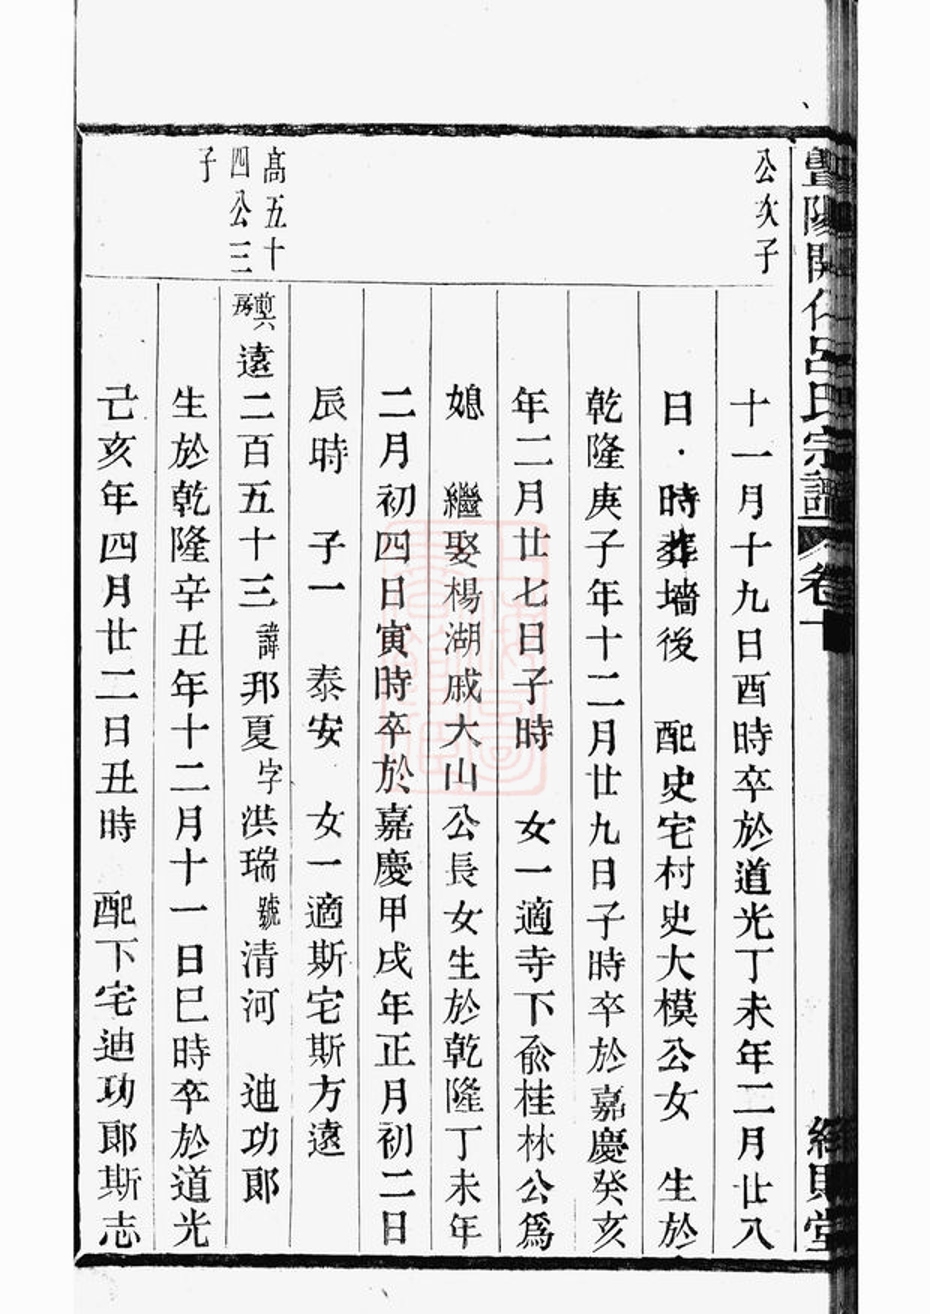 暨陽開化呂氏宗譜 卷十 經則堂
公次子
十一月十九日酉時卒於道光丁未年二月廿八
日·時葬墻後 配史宅村史大模公女 生於
乾隆庚子年十二月廿九日子時卒於嘉慶癸亥
年二月廿七日子時 女一適寺下俞桂林公爲
媳 繼娶楊湖戚大山公長女生於乾隆丁未年
二月初四日寅時卒於嘉慶甲戌年正月初二日
辰時 子一 泰安 女一適斯宅斯方遠
高五十
四公三
子
房 遠二百五十三諱邦夏字洪瑞號清河 迪功郎
生於乾隆辛丑年十二月十一日巳時卒於道光
己亥年四月廿二日丑時 配下宅迪功郎斯志